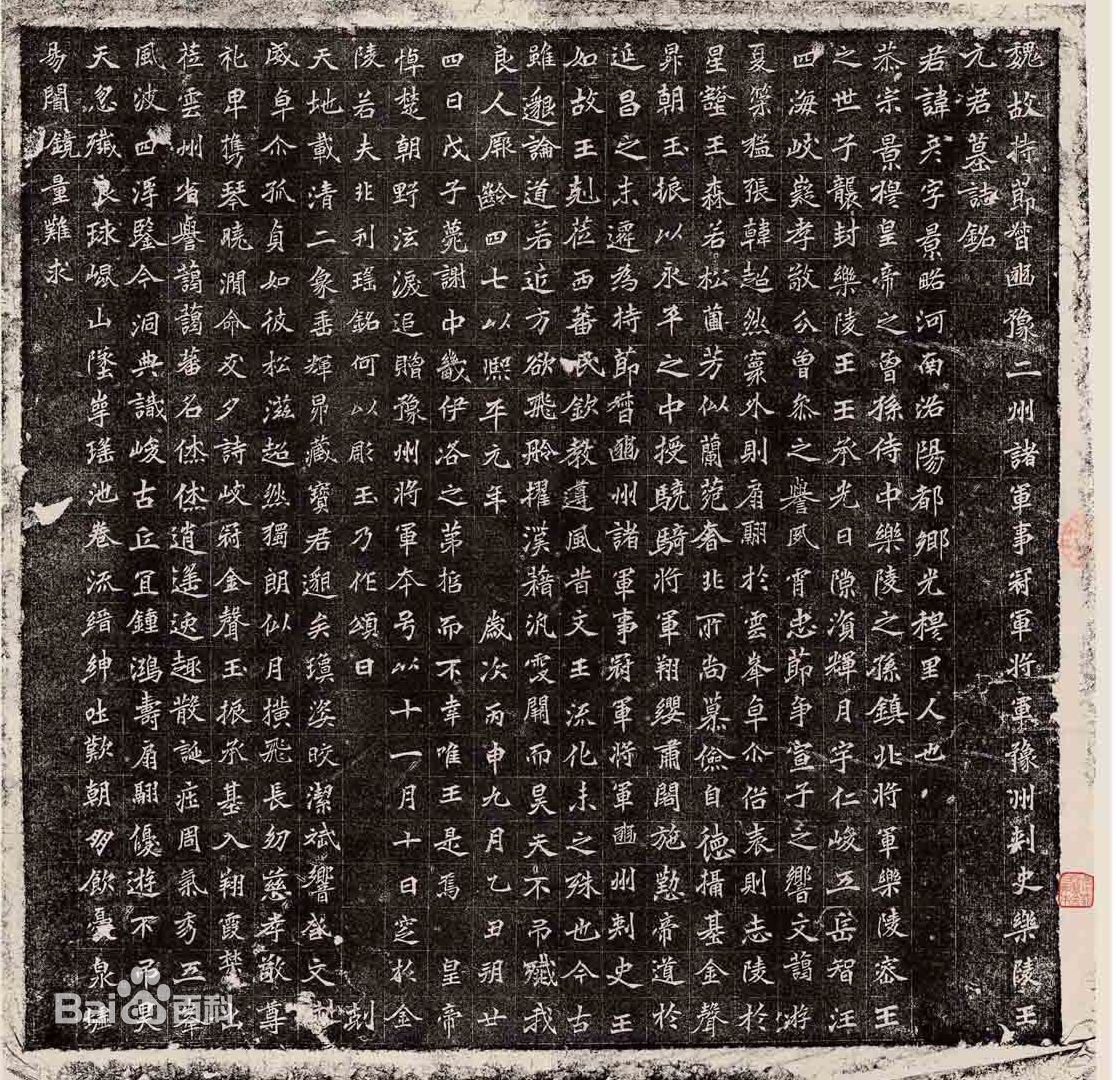 魏故持節督豳豫二州諸軍事冠軍將軍豫州刾史樂陵王
元君墓誌銘
君諱彦字景略河南洛陽都鄉光穆里人也
恭宗景穆皇帝之曾孫侍中樂陵之孫鎮北將軍樂陵密王
之世子襲封樂陵王王承光日隙演輝月宇仁峻五岳智汪
四海岐嶷孝敬分曾參之譽夙宵忠節争宣子之響文藹游
夏筞猛張韓超然寰外則扇翮於雲峯卓尒俗表則志陵於
星壑王森若松蘭芳似蘭范奢非所尚慕儉自德攝基金聲
昇朝玉振以永平之中授驍騎將軍翔纓肅閣施懃帝道於
延昌之末遷為持節督豳州諸軍事冠軍將軍豳州刾史王
如故王剋莅西蕃民欽教遵風昔文王流化未之殊也今古
雖邈論道若近方欲飛舲擢漢藉汎雯開而昊天不吊殲我
良人厤齡四七以熙平元年歲次丙申九月乙丑朔廿
四日戊子薨謝中畿伊洛之苐捃而不幸唯王是焉皇帝
悼楚朝野泫淚追贈豫州將軍夲号以十一月十日窆於金
陵若夫非刊瑤銘何以彫玉乃作頌曰刾
天地載清二象垂輝昴藏寶君邈矣瓊姿晈潔斌響盛文
威卓尒孤貞如彼松滋超然獨朗似月横飛長幼慈孝敬尊
礼卑携琴曉澗命友夕詩岐嶷金聲玉振承基入翔霞禁出
莅雲州省譽藹藹蕃名烋烋逍遥速趣散誕庄周氣秀五峯
風波四浮鑒今洞典識峻古丘冝鍾鴻壽扇翮優遊不弔昊
天忽殲良球崐山墜㟧瑤池卷流縉紳吐歎朝多飲憂泉壚
易闇鏡量難求
Bai 百科